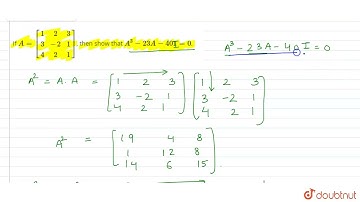 If A = [1 2 3
3 -2 1
4 2 1], then show that A³ - 23A - 40I = 0.
A³ - 23A - 40I = 0
A² = A. A = [1 2 3
3 -2 1
4 2 1] [1 2 3
3 -2 1
4 2 1]
A² = [19 4 8
1 12 8
14 6 15]
doubtnut